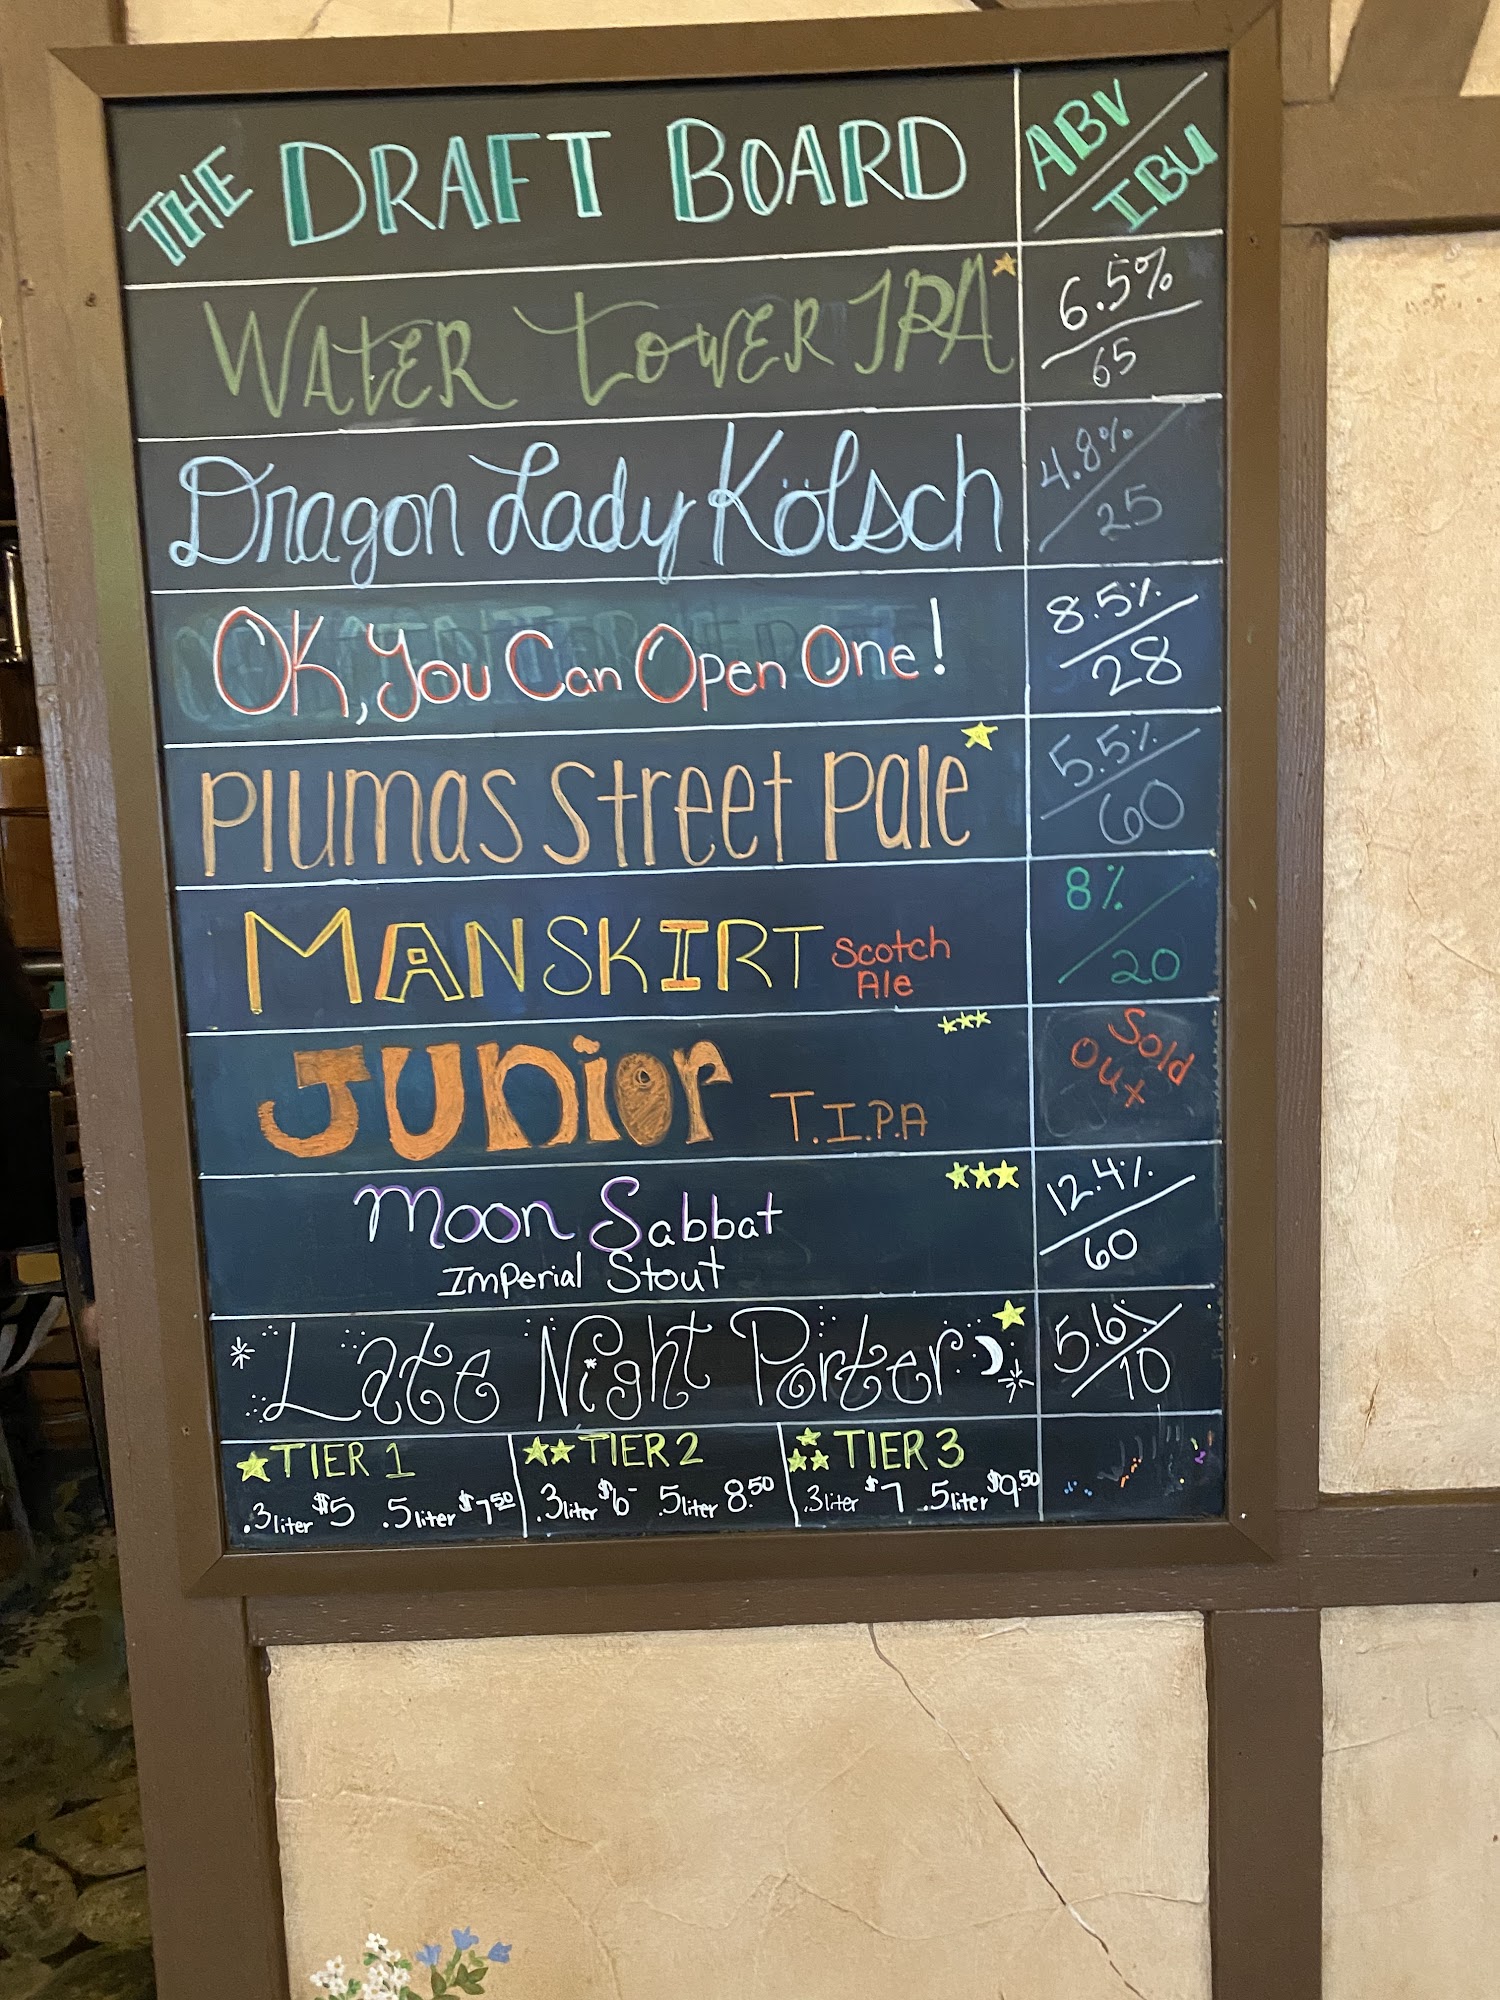 THE DRAFT BOARD ABV/IBU
WATER TOWER IPA 6.5%/65
Dragon Lady Kölsch 4.8%/25
OK, You Can Open One! 8.5%/28
Plumas Street Pale 5.5%/60
MANSKIRT Scotch Ale 8%/20
JUNior T.I.P.A Sold Out
Moon Sabbat 12.4%/60
Imperial Stout
Late Night Porter 5.6%/10
TIER 1 TIER 2 TIER 3
.3liter $5 .5liter $7.50 .3liter $6- .5liter 8.50 .3liter $7 .5liter $9.50